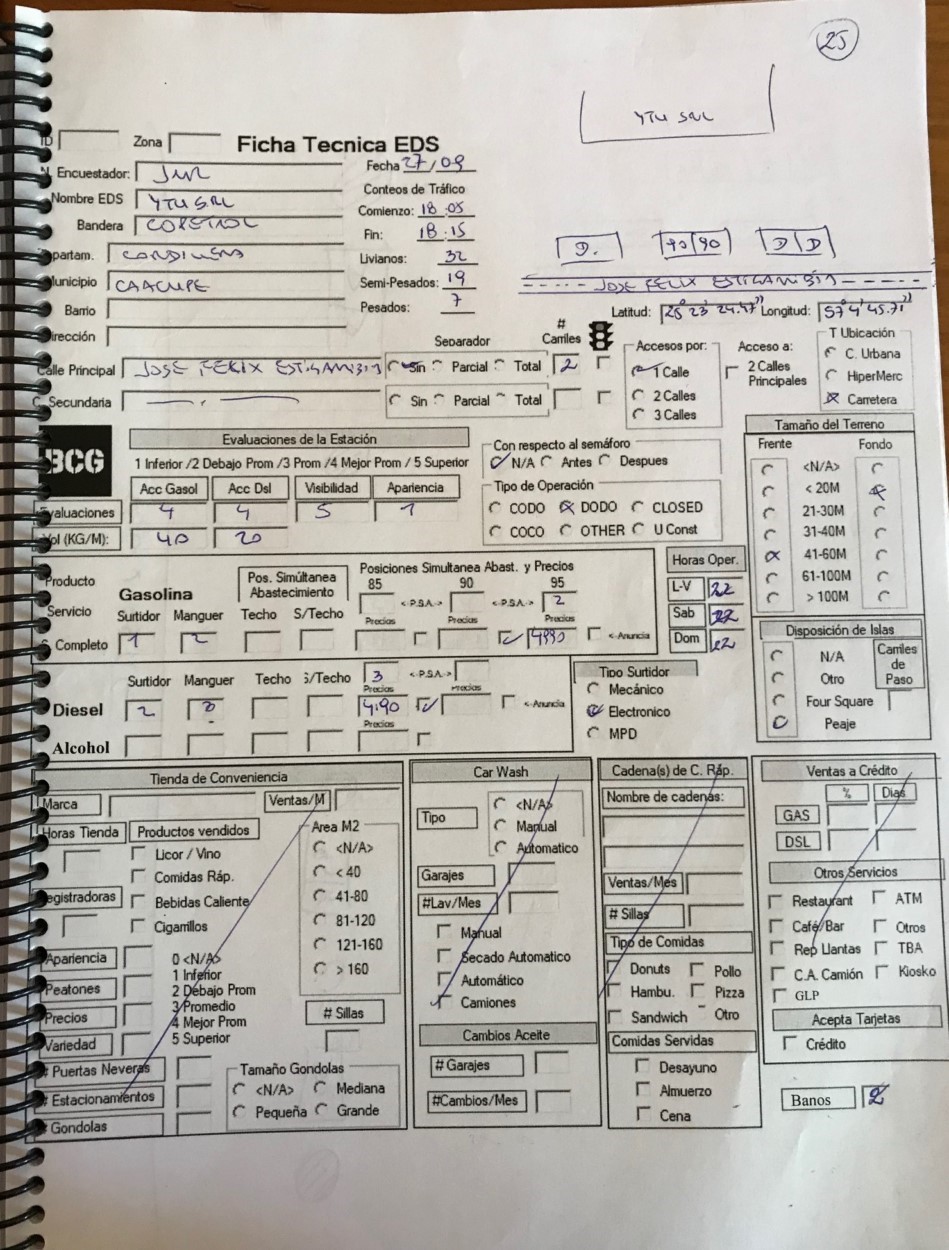 25
YTU SRL
ID Zona Ficha Tecnica EDS
Fecha 27/09
N. Encuestador: JML
Conteos de Tráfico
Nombre EDS YTU S.RL
Comienzo: 18:05
Bandera COPETROL
Fin: 18:15
D. 90|90 D|D
Departam.
Livianos: 32
Municipio CAACUPE
Semi-Pesados: 19
JOSE FELIX ESTIGARRIBIA
Barrio
Pesados: 7
Latitud: 25° 23' 24.47" Longitud: 57° 4' 45.71"
Dirección
Separador # Carriles
Accesos por: Acceso a: T Ubicación
Calle Principal JOSE FELIX ESTIGARRIBIA Sin Parcial Total 2
1 Calle 2 Calles Principales C. Urbana
2 Calles HiperMerc
C. Secundaria Sin Parcial Total
3 Calles Carretera
BCG
Evaluaciones de la Estación
1 Inferior /2 Debajo Prom /3 Prom /4 Mejor Prom / 5 Superior
Acc Gasol Acc Dsl Visibilidad Apariencia
Evaluaciones 4 4 5 1
Vol (KG/M): 40 20
Con respecto al semáforo
N/A Antes Despues
Tipo de Operación
CODO DODO CLOSED
COCO OTHER U Const
Tamaño del Terreno
Frente Fondo
<N/A>
< 20M
21-30M
31-40M
41-60M
61-100M
> 100M
Producto Gasolina Pos. Simúltanea Abastecimiento Posiciones Simultanea Abast. y Precios
85 90 95
<-P.S.A.-> <-P.S.A.-> 2
Servicio Surtidor Manguer Techo S/Techo Precios Precios Precios
S. Completo 1 2 4990 <-Anuncia
Horas Oper.
L-V 22
Sab 22
Dom 22
Disposición de Islas
N/A Carriles de Paso
Otro
Four Square
Peaje
Surtidor Manguer Techo S/Techo 3 <-P.S.A.->
Precios Precios
Diesel 2 4.90 <-Anuncia
Precios
Alcohol
Tipo Surtidor
Mecánico
Electronico
MPD
Tienda de Conveniencia
Marca Ventas/M
Horas Tienda Productos vendidos Area M2
Licor / Vino <N/A>
Comidas Ráp. < 40
Registradoras Bebidas Caliente 41-80
Cigarrillos 81-120
Apariencia 0 <N/A> 121-160
1 Inferior > 160
Peatones 2 Debajo Prom
Precios 3 Promedio # Sillas
4 Mejor Prom
Variedad 5 Superior
# Puertas Neveras Tamaño Gondolas
# Estacionamientos <N/A> Mediana
# Gondolas Pequeña Grande
Car Wash
Tipo <N/A>
Manual
Automatico
Garajes
#Lav/Mes
Manual
Secado Automatico
Automático
Camiones
Cambios Aceite
# Garajes
#Cambios/Mes
Cadena(s) de C. Ráp.
Nombre de cadenas:
Ventas/Mes
# Sillas
Tipo de Comidas
Donuts Pollo
Hambu. Pizza
Sandwich Otro
Comidas Servidas
Desayuno
Almuerzo
Cena
Ventas a Crédito
% Dias
GAS
DSL
Otros Servicios
Restaurant ATM
Café/Bar Otros
Rep Llantas TBA
C.A. Camión Kiosko
GLP
Acepta Tarjetas
Crédito
Banos 2